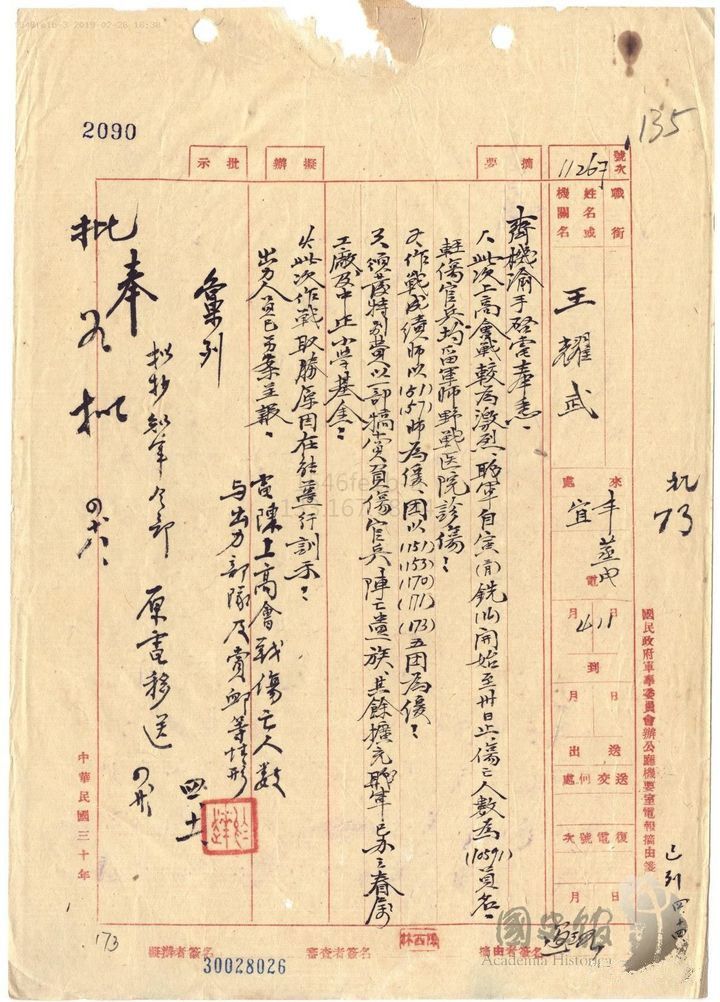 2090
135
號次
11267
職銜
姓名或
機關名
王耀武
來處
宜
電
月
日
4
11
到
月
日
送出
送交何處
復電號次
月
日
國民政府軍事委員會辦公廳機要室電報摘由箋
73
摘要
擬辦
批示
齊機渝手啓電奉悉、
此次上高會戰較為激烈、職軍自寅(有)銑(16)開始至卅日止、傷亡人數為(10591)員名、
輕傷官兵均留軍師野戰医院診傷、
作戰成績師以(51)(57)師為優、團以(151)(153)(170)(171)(173)五團為優、
頒茂特別費以一部犒賞負傷官兵、陣亡遺族、其餘擴充職軍之眷屬
工廠及中正小學基金、
此次作戰取勝原因在能遵行訓示、
出力人員已另案呈報、
電陳上高會戰傷亡人數
與出力部隊及賞卹等情形
彙列
奉
批
原電移送
四十
中華民國三十年
173
擬辦者簽名
審查者簽名
摘由者簽名
30028026
國史館
Academia Historica